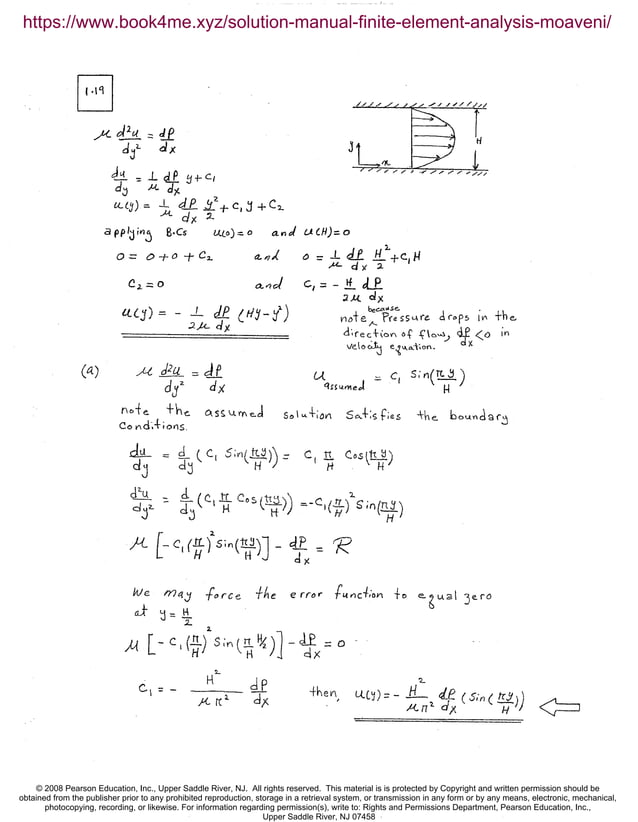 https://www.book4me.xyz/solution-manual-finite-element-analysis-moaveni/
1.19
μ d²u/dy² = dP/dx
du/dy = 1/μ dP/dx y + C₁
u(y) = 1/μ dP/dx y²/2 + C₁y + C₂
y
x
H
applying B.Cs u(0)=0 and u(H)=0
0 = 0 + 0 + C₂ and 0 = 1/μ dP/dx H²/2 + C₁H
C₂ = 0 and C₁ = - H/2μ dP/dx
u(y) = - 1/2μ dP/dx (Hy-y²)
note, because Pressure drops in the
direction of flow, dP/dx <0 in
velocity equation.
(a) μ d²u/dy² = dP/dx u assumed = C₁ Sin(πy/H)
note the assumed solution satisfies the boundary
conditions.
du/dy = d/dy (C₁ Sin(πy/H)) = C₁ π/H Cos(πy/H)
d²u/dy² = d/dy (C₁ π/H Cos(πy/H)) = -C₁(π/H)² Sin(πy/H)
μ [-C₁(π/H)² Sin(πy/H)] - dP/dx = R
We may force the error function to equal zero
at y = H/2
μ [-C₁(π/H)² Sin(π/H H/2)] - dP/dx = 0
C₁ = - H²/μπ² dP/dx then, u(y) = - H²/μπ² dP/dx (Sin(πy/H))
© 2008 Pearson Education, Inc., Upper Saddle River, NJ. All rights reserved. This material is is protected by Copyright and written permission should be
obtained from the publisher prior to any prohibited reproduction, storage in a retrieval system, or transmission in any form or by any means, electronic, mechanical,
photocopying, recording, or likewise. For information regarding permission(s), write to: Rights and Permissions Department, Pearson Education, Inc.,
Upper Saddle River, NJ 07458